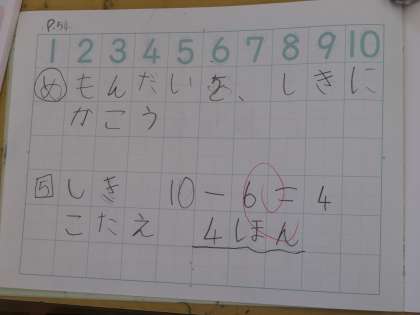 P.54
1 2 3 4 5 6 7 8 9 10
め もんだいを、しきに
かこう
5 しき 10-6=4
こたえ 4ほん